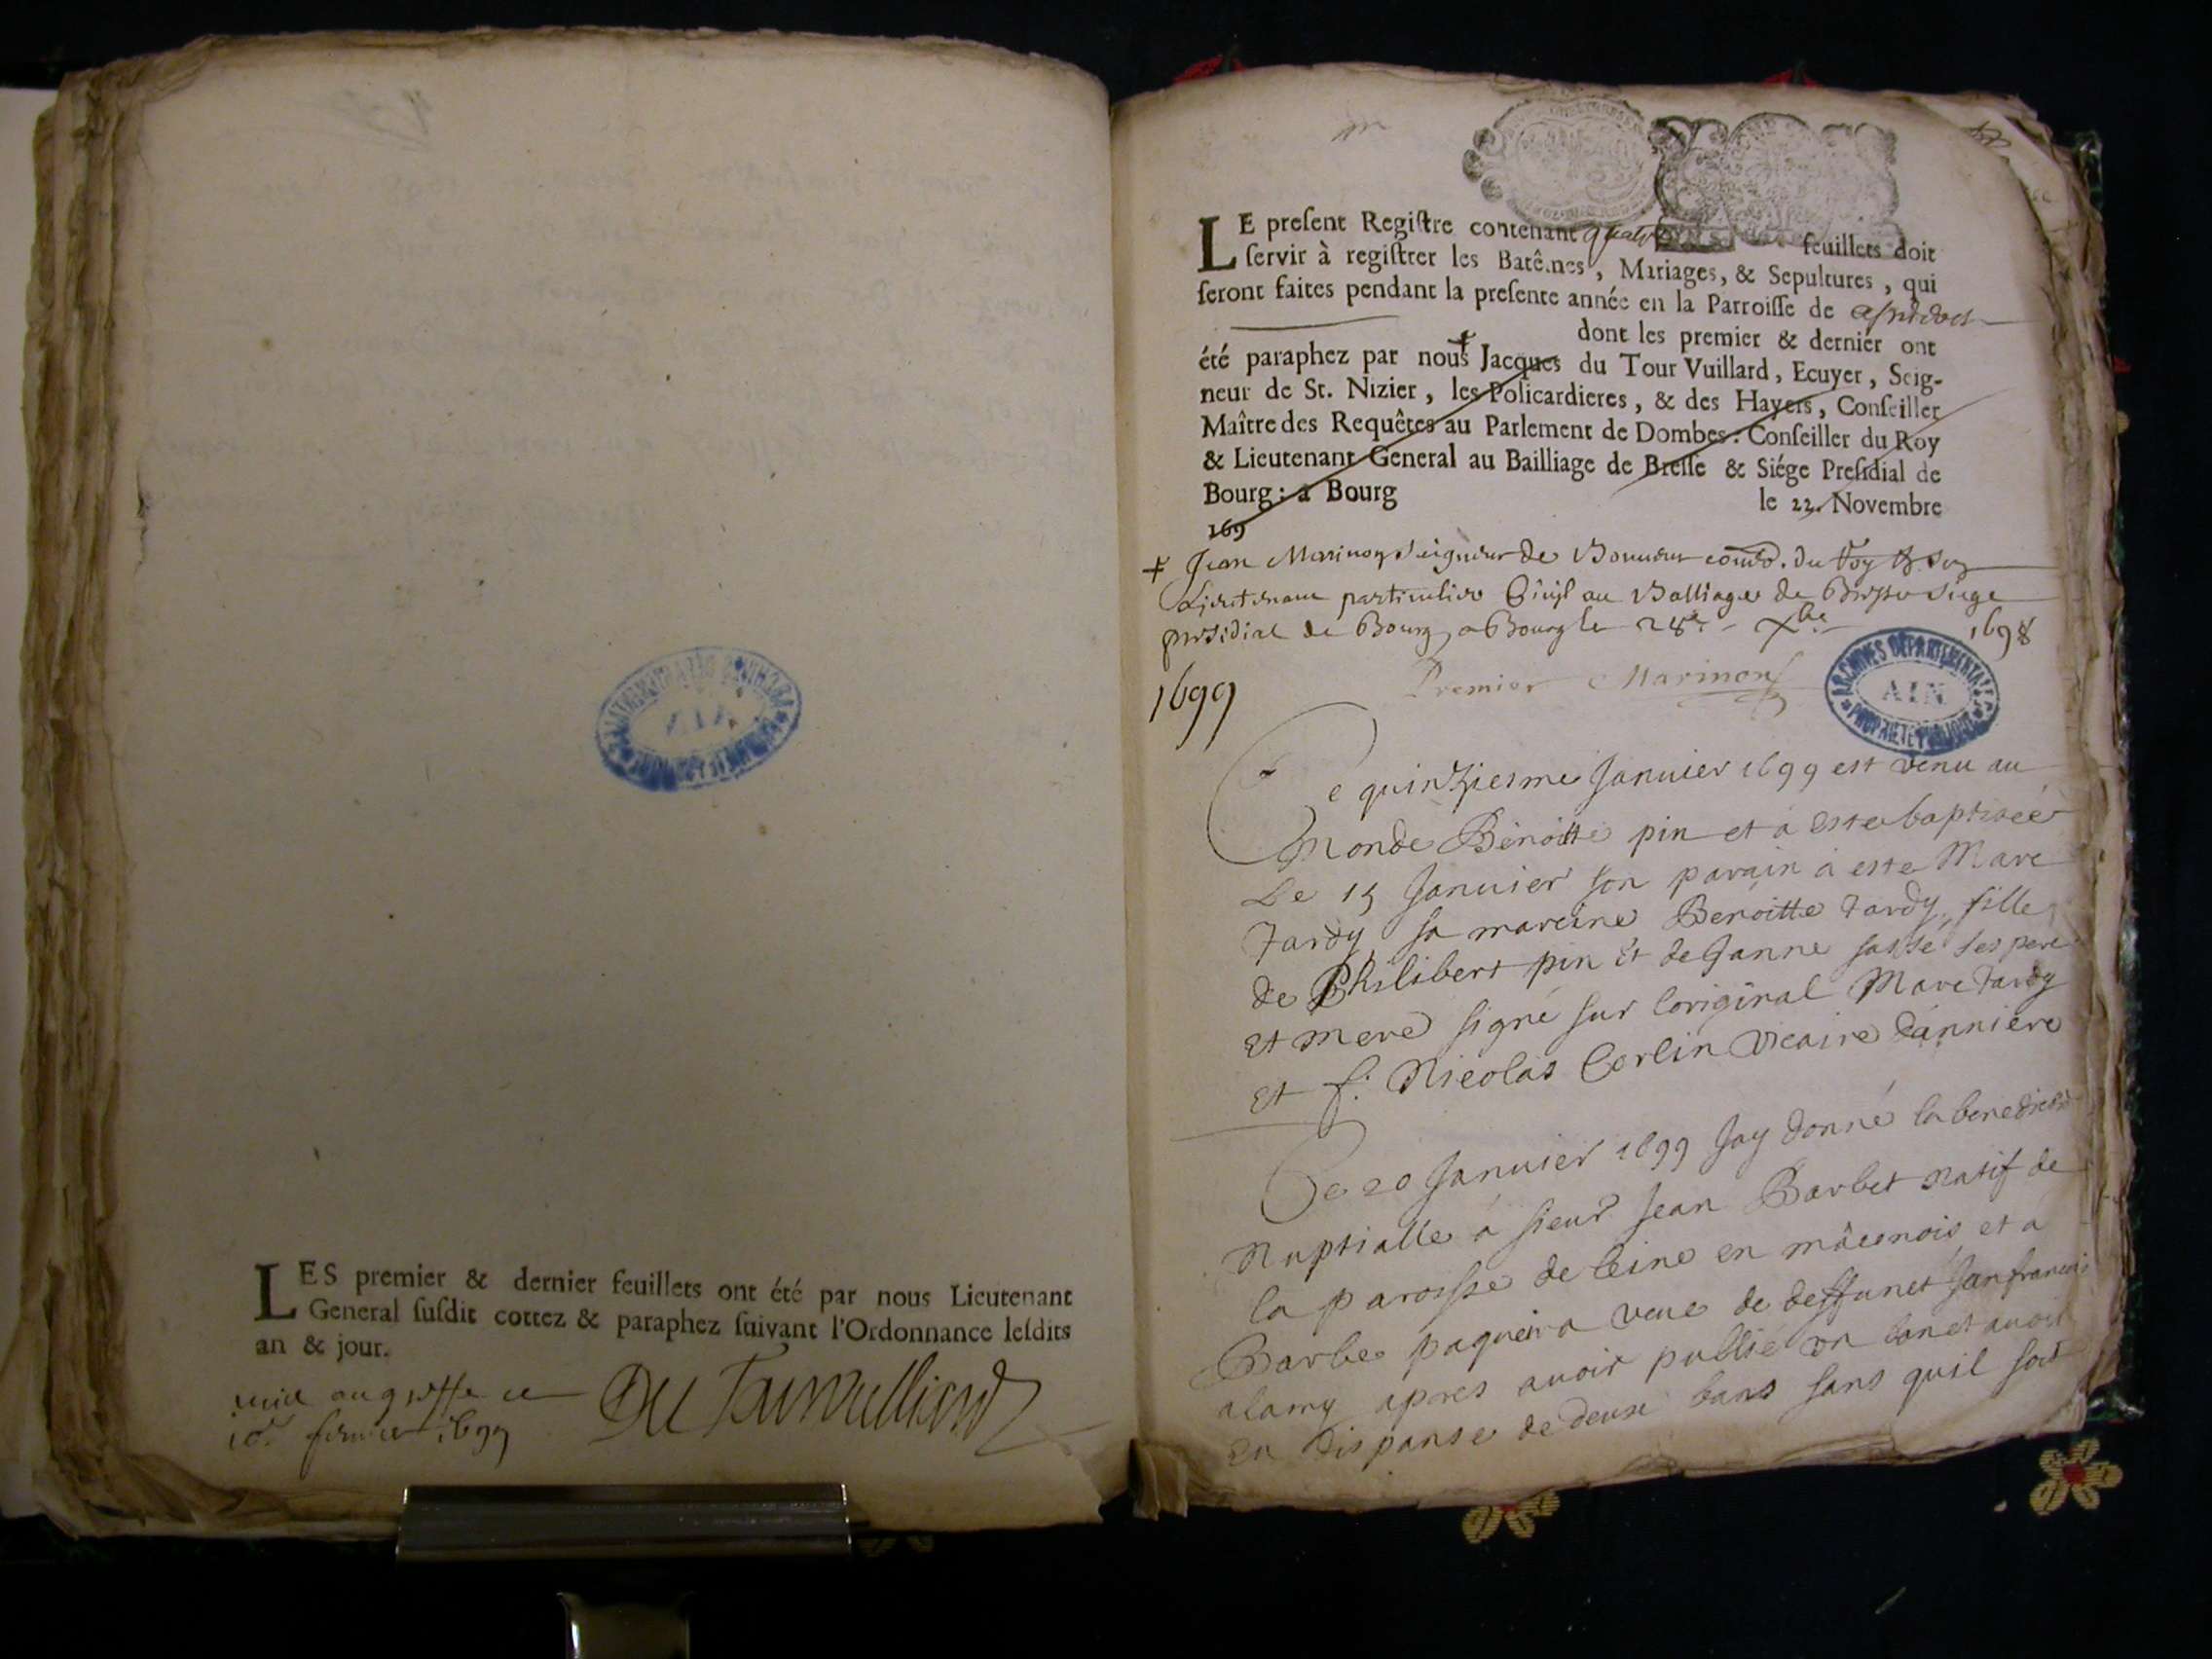 LES premier & dernier feuillets ont été par nous Lieutenant
General susdit cottez & paraphez suivant l'Ordonnance lesdits
an & jour.
mis au greffe ce
10e fevrier 1699
LE present Registre contenant quatre feuillets doit
servir à registrer les Batêmes, Mariages, & Sepultures, qui
seront faites pendant la presente année en la Parroisse de
dont les premier & dernier ont
été paraphez par nous Jacques du Tour Vuillard, Ecuyer, Seig-
neur de St. Nizier, les Policardieres, & des Hayers, Conseiller
Maître des Requêtes au Parlement de Dombes: Conseiller du Roy
& Lieutenant General au Bailliage de Bresse & Siége Presidial de
Bourg: à Bourg le 22. Novembre
169
+ Jean Marinon seigneur de du Roy
Lieutenant particulier Civil au Balliage de Bresse siege
presidial de Bourg, a Bourg le 28e Xbre 1698
Premier Marinon
1699
ARCHIVES DÉPARTEMENTALES
AIN
PROPRIÉTÉ PUBLIQUE
Ce quinziesme Januier 1699 est venu au
monde Benoitte pin et a este baptisée
Le 15 Januier son parain a este Marc
Tardy sa mareine Benoitte Tardy, fille
de Philibert pin et de Janne sassé ses pere
et mere signé sur loriginal Marc Tardy
et f. Nicolas Corlin Vicaire danniere
Ce 20 Januier 1699 Jay donné la
Nuptialle a sieur Jean Barbet natif de
la paroisse de leine en mâconnois et a
Barbe paqueira veue de deffunct Jean francois
alamy apres auoir publié un ban et auoir
eu dispanse de deux bans sans quil soit